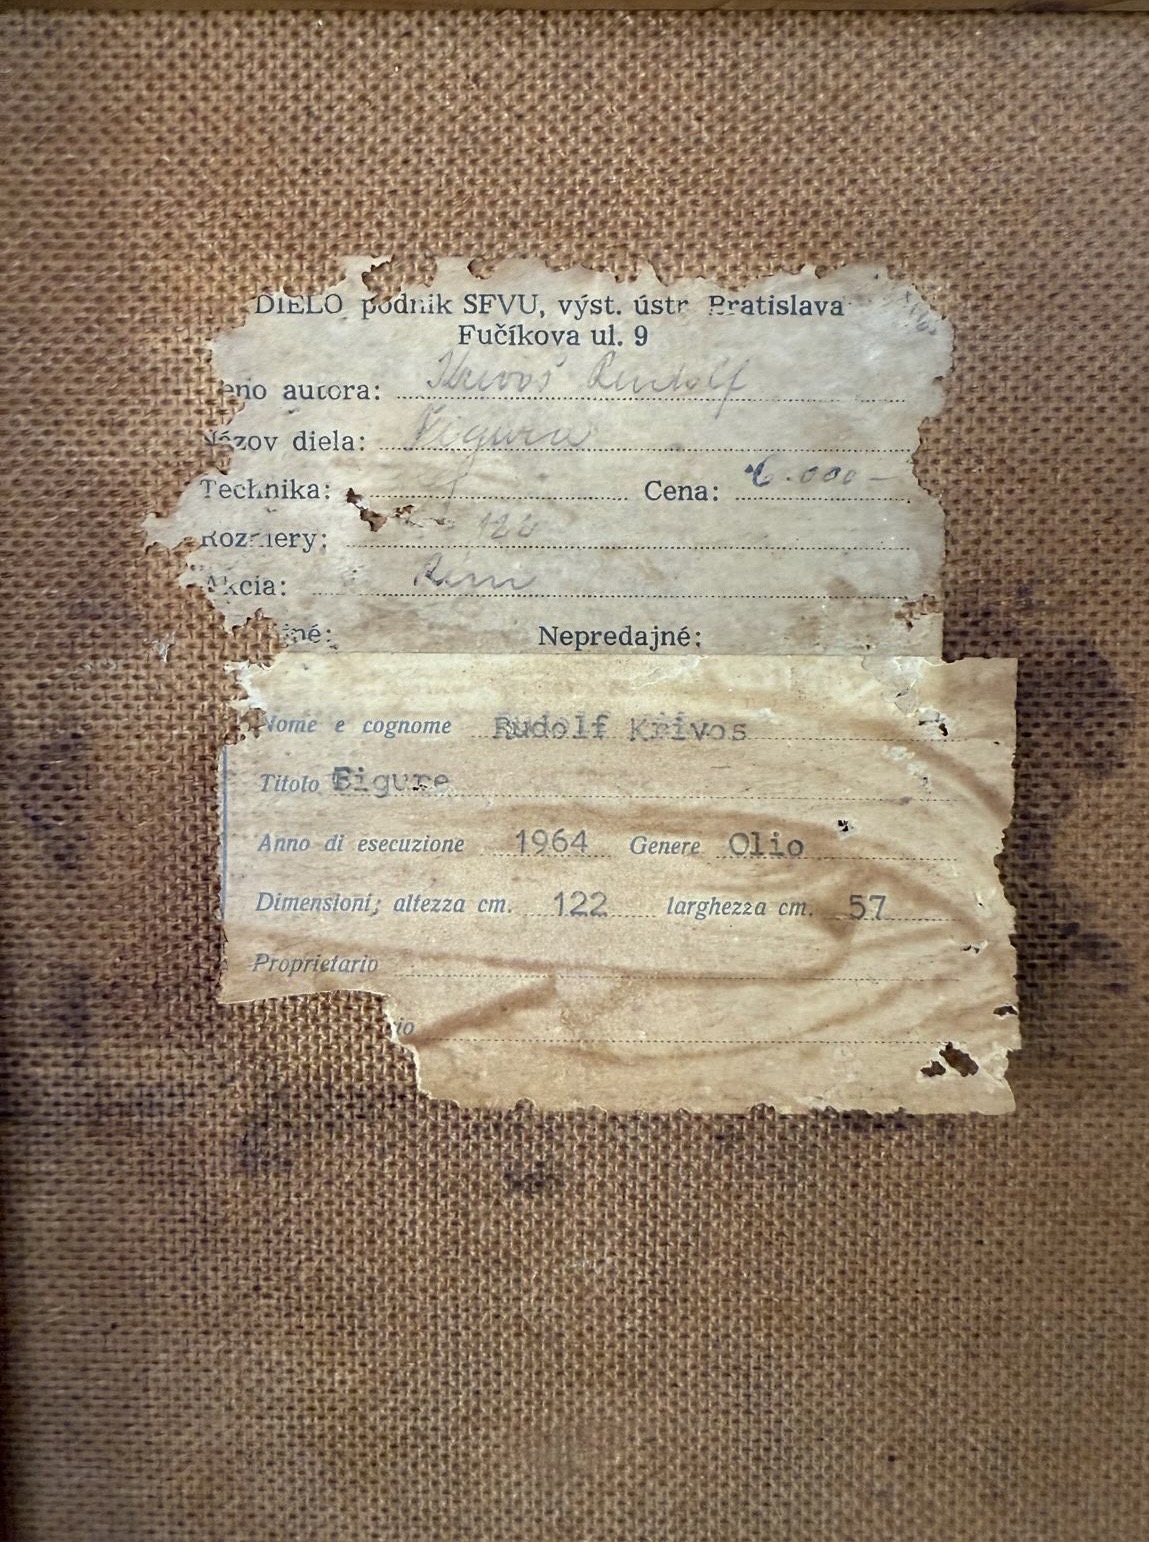 DIELO podnik SFVU, výst. ústr Bratislava
Fučíkova ul. 9
eno autora: Krivoš Rudolf
Názov diela: Figura
Technika: Cena: 6.000-
Rozmery: 122
Akcia: Rím
né: Nepredajné:
Nome e cognome Rudolf Krivos
Titolo Figure
Anno di esecuzione 1964 Genere Olio
Dimensioni; altezza cm. 122 larghezza cm. 57
Proprietario
io